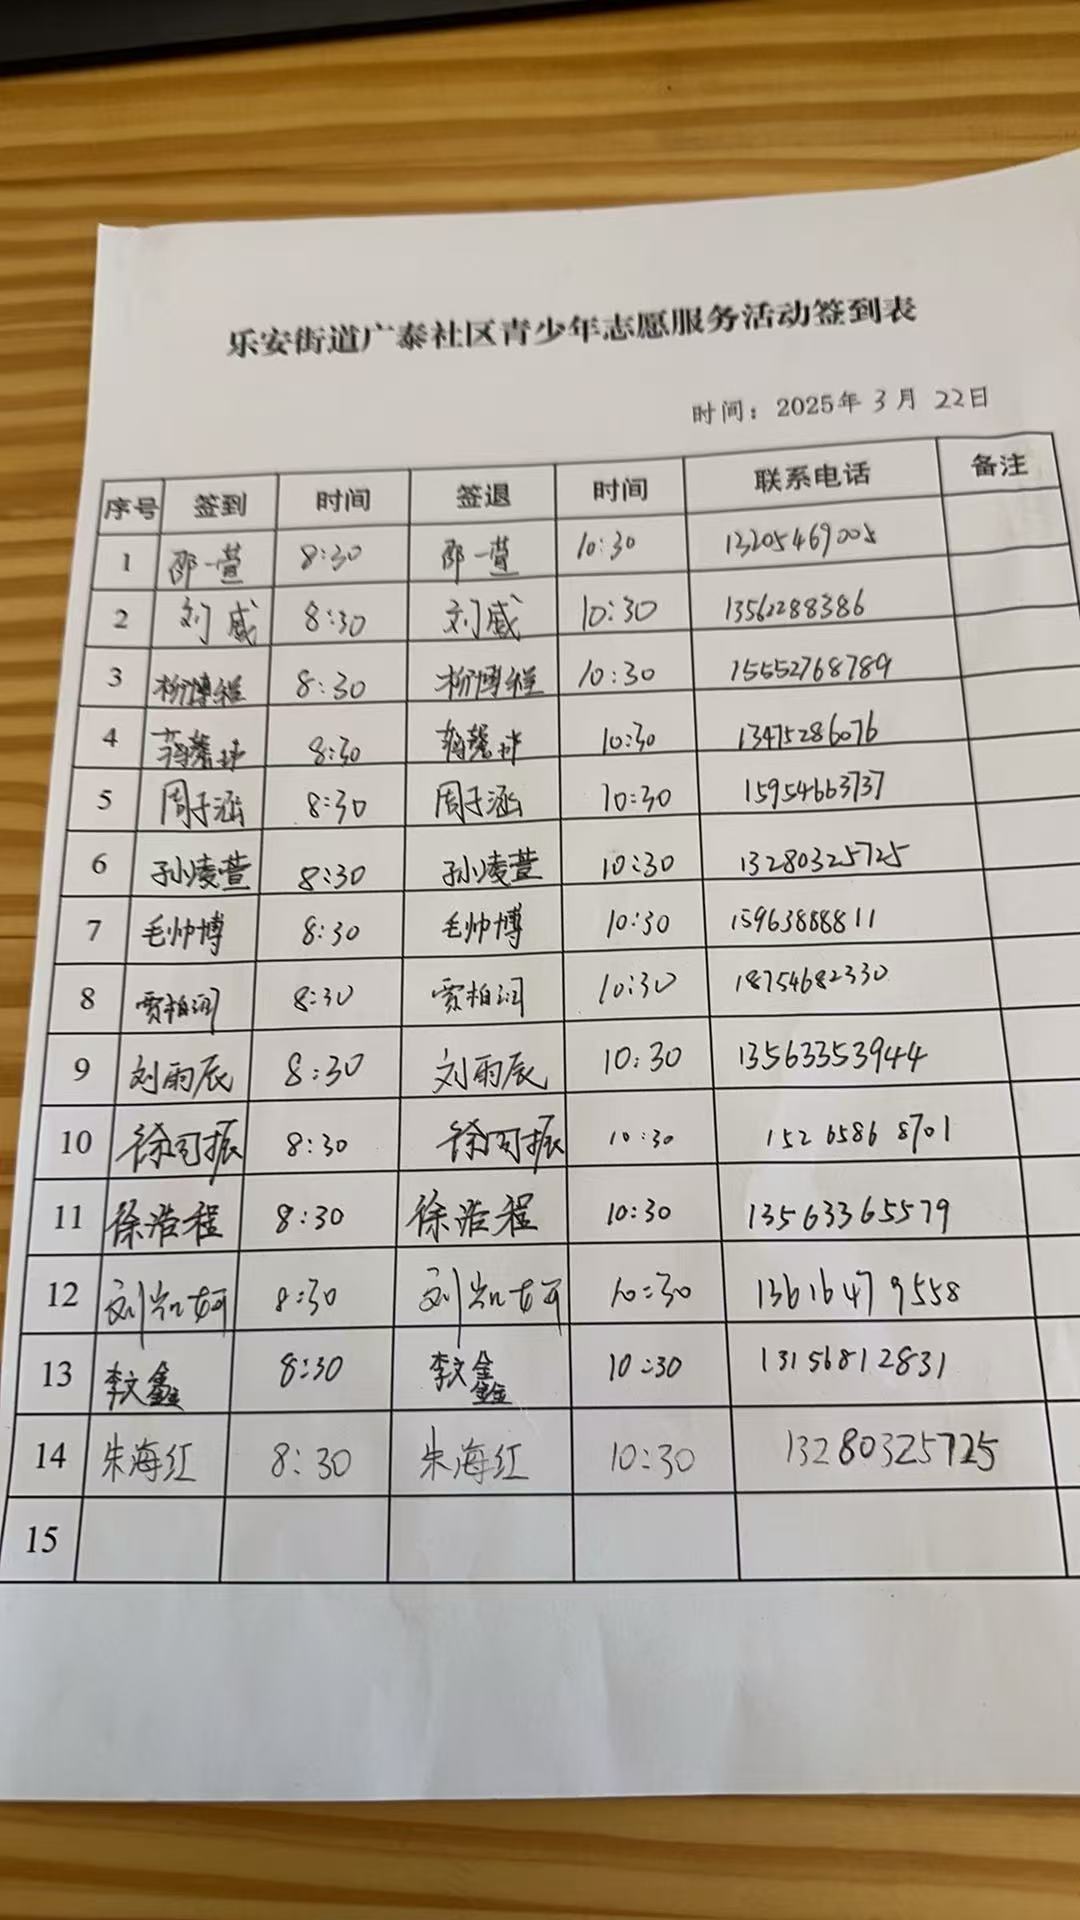 乐安街道广泰社区青少年志愿服务活动签到表
时间：2025年 3月 22日
序号 签到 时间 签退 时间 联系电话 备注
1 邵一萱 8:30 邵一萱 10:30 13205469005
2 刘威 8:30 刘威 10:30 13562288386
3 杨博程 8:30 杨博程 10:30 15552768789
4 8:30 10:30 13475286076
5 周子涵 8:30 周子涵 10:30 15954663737
6 孙凌萱 8:30 孙凌萱 10:30 13280325725
7 毛帅博 8:30 毛帅博 10:30 15963888811
8 贾柏润 8:30 贾柏润 10:30 18754682330
9 刘雨辰 8:30 刘雨辰 10:30 13563353944
10 徐司振 8:30 徐司振 10:30 152 6586 8701
11 徐浩程 8:30 徐浩程 10:30 13563365579
12 刘凯妸 8:30 刘凯妸 10:30 13616479558
13 李文鑫 8:30 李文鑫 10:30 13156812831
14 朱海红 8:30 朱海红 10:30 13280325725
15